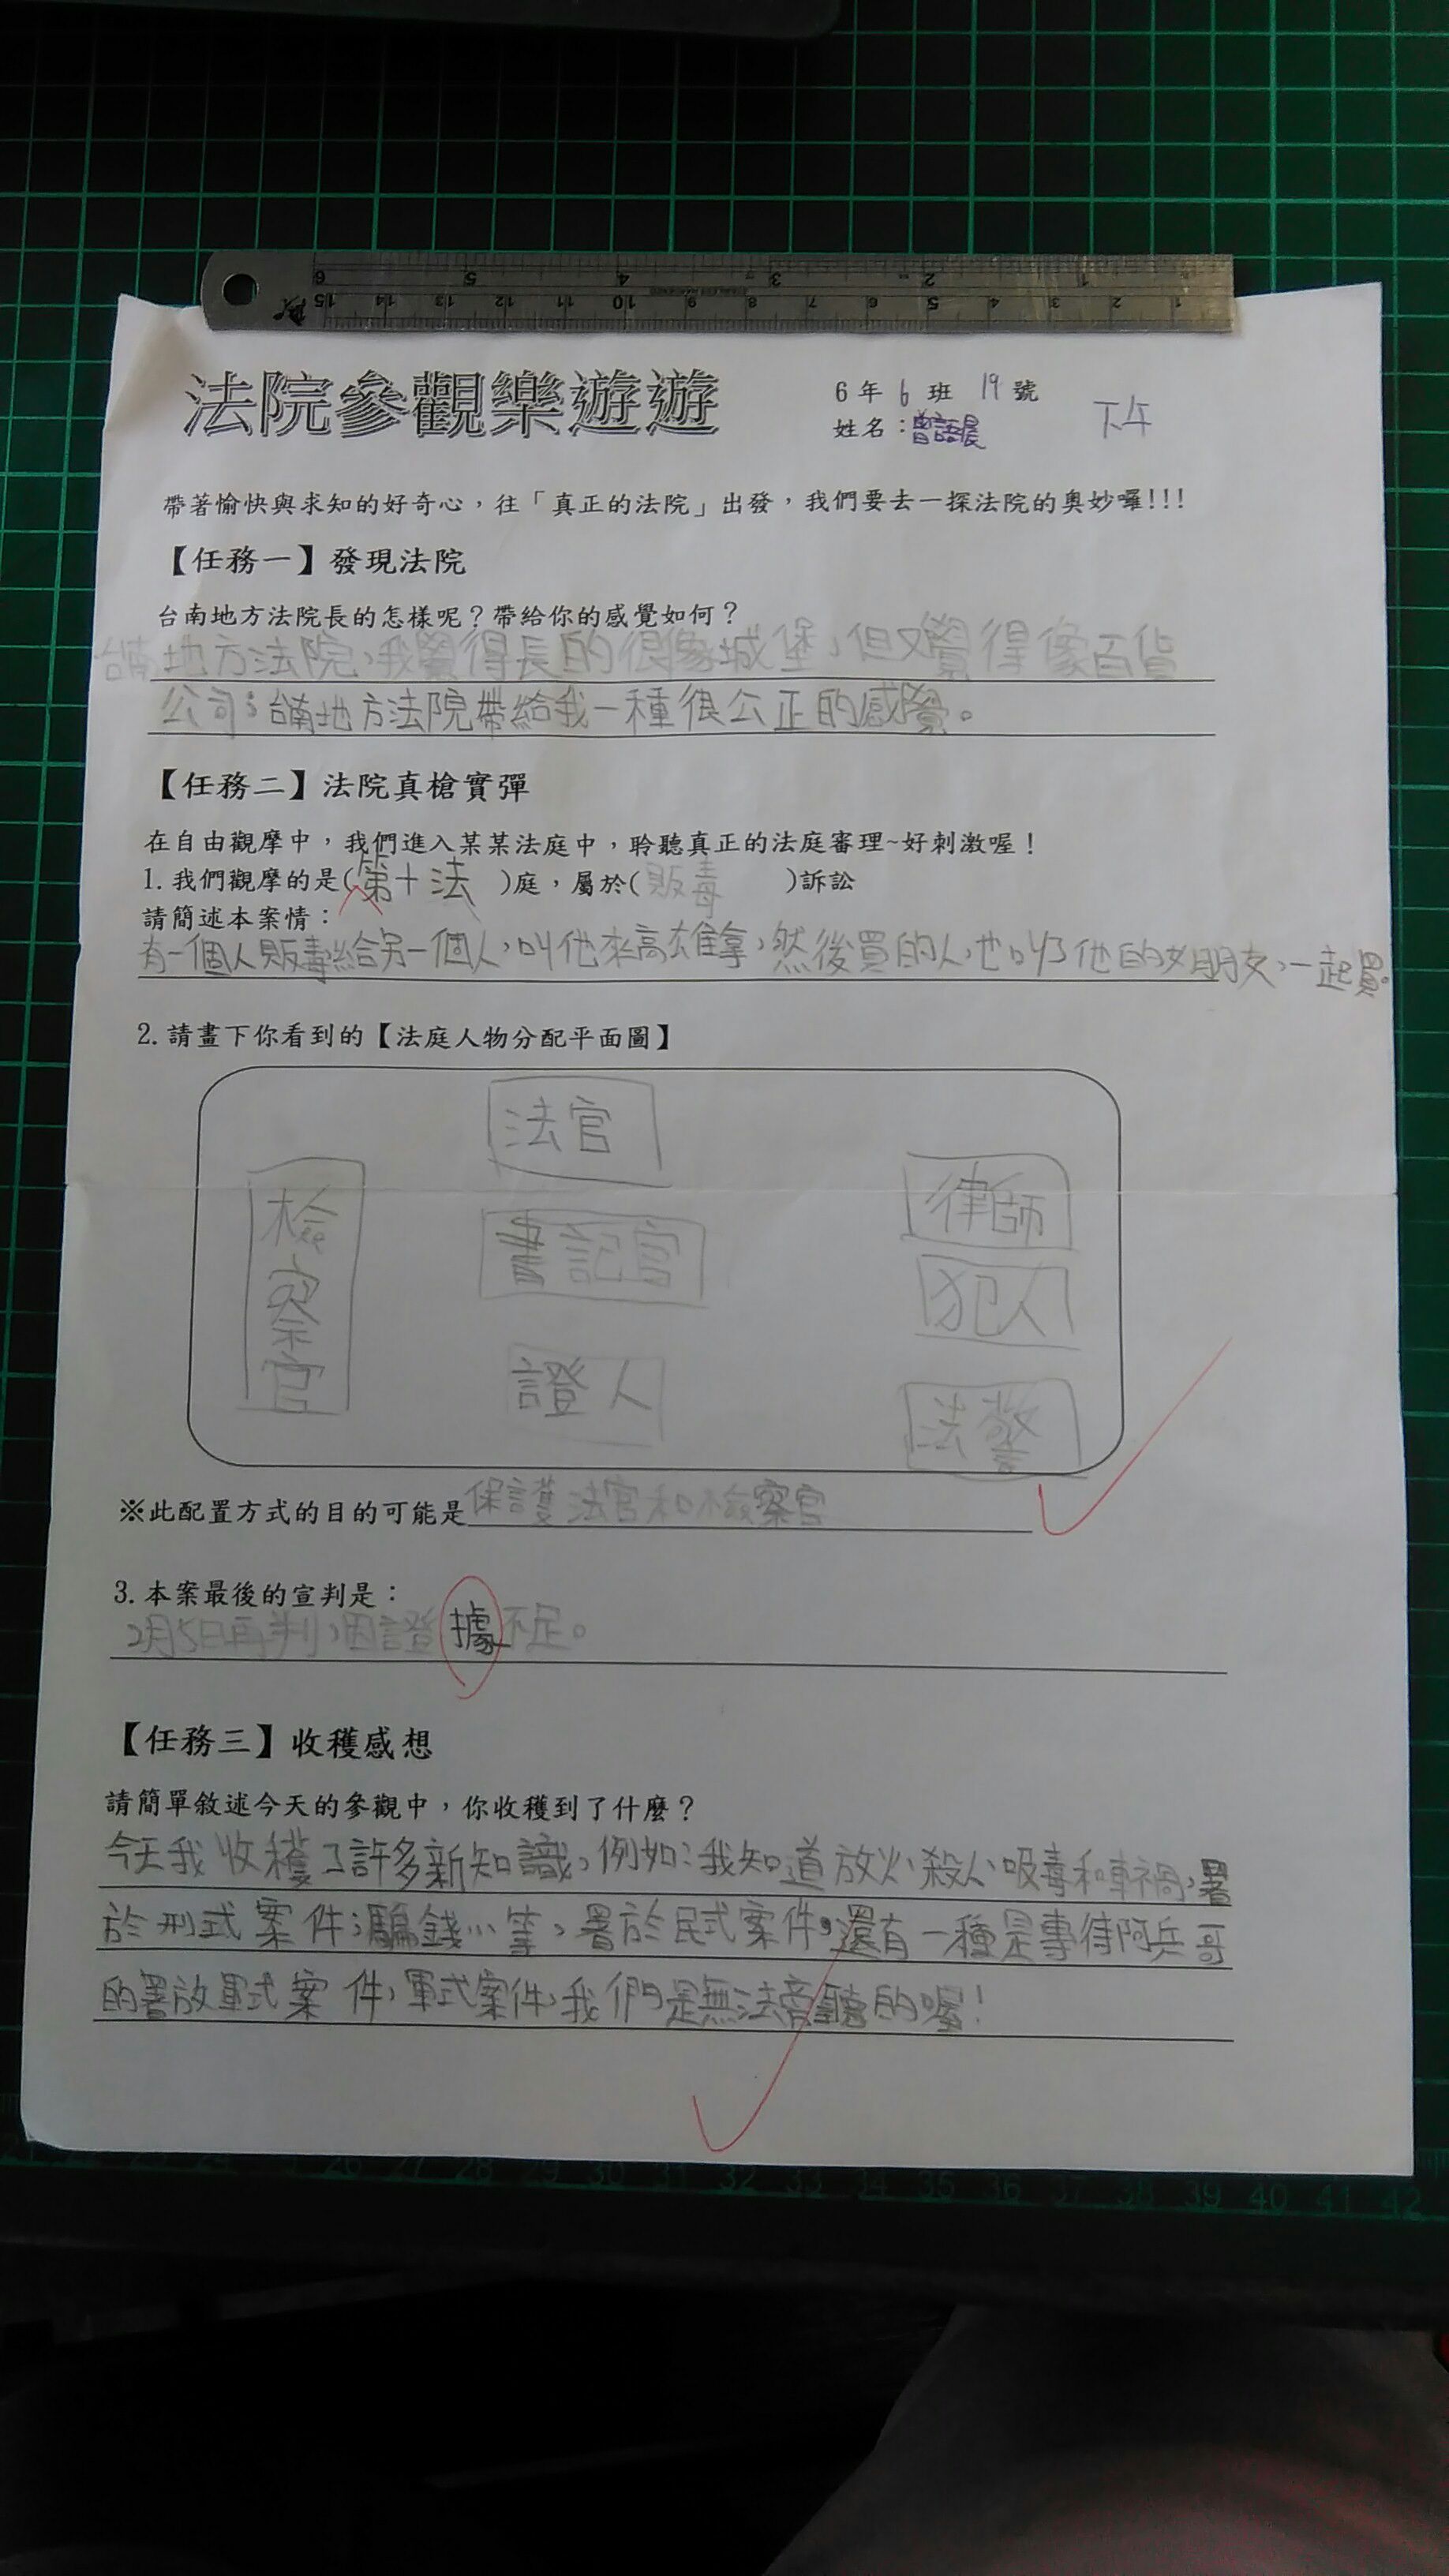 法院參觀樂遊遊
6年6班 19號
姓名：曾語晨
下午
帶著愉快與求知的好奇心，往「真正的法院」出發，我們要去一探法院的奧妙囉!!!
【任務一】發現法院
台南地方法院長的怎樣呢？帶給你的感覺如何？
台南地方法院，我覺得長的很像城堡，但又覺得像百貨
公司；台南地方法院帶給我一種很公正的感覺。
【任務二】法院真槍實彈
在自由觀摩中，我們進入某某法庭中，聆聽真正的法庭審理~好刺激喔！
1.我們觀摩的是(第十法)庭，屬於(販毒)訴訟
請簡述本案情：
有一個人販毒給另一個人，叫他來高雄拿，然後買的人也叫了他的女朋友，一起買。
2.請畫下你看到的【法庭人物分配平面圖】
法官
檢察官
律師
書記官
犯人
證人
法警
※此配置方式的目的可能是保護法官和檢察官
3.本案最後的宣判是：
2月5日再判，因證據不足。
【任務三】收穫感想
請簡單敘述今天的參觀中，你收穫到了什麼？
今天我收穫了許多新知識，例如：我知道放火、殺人、吸毒和車禍，署
於刑式案件；騙錢小等，署於民式案件，還有一種是專待阿兵哥
的署放軍式案件，軍式案件，我們是無法旁聽的喔！
15 14 13 12 11 10 9 8 7 6 5 4 3 2 1
6 5 4 3 2 1
26 27 28 29 30 31 32 33 34 35 36 37 38 39 40 41 42